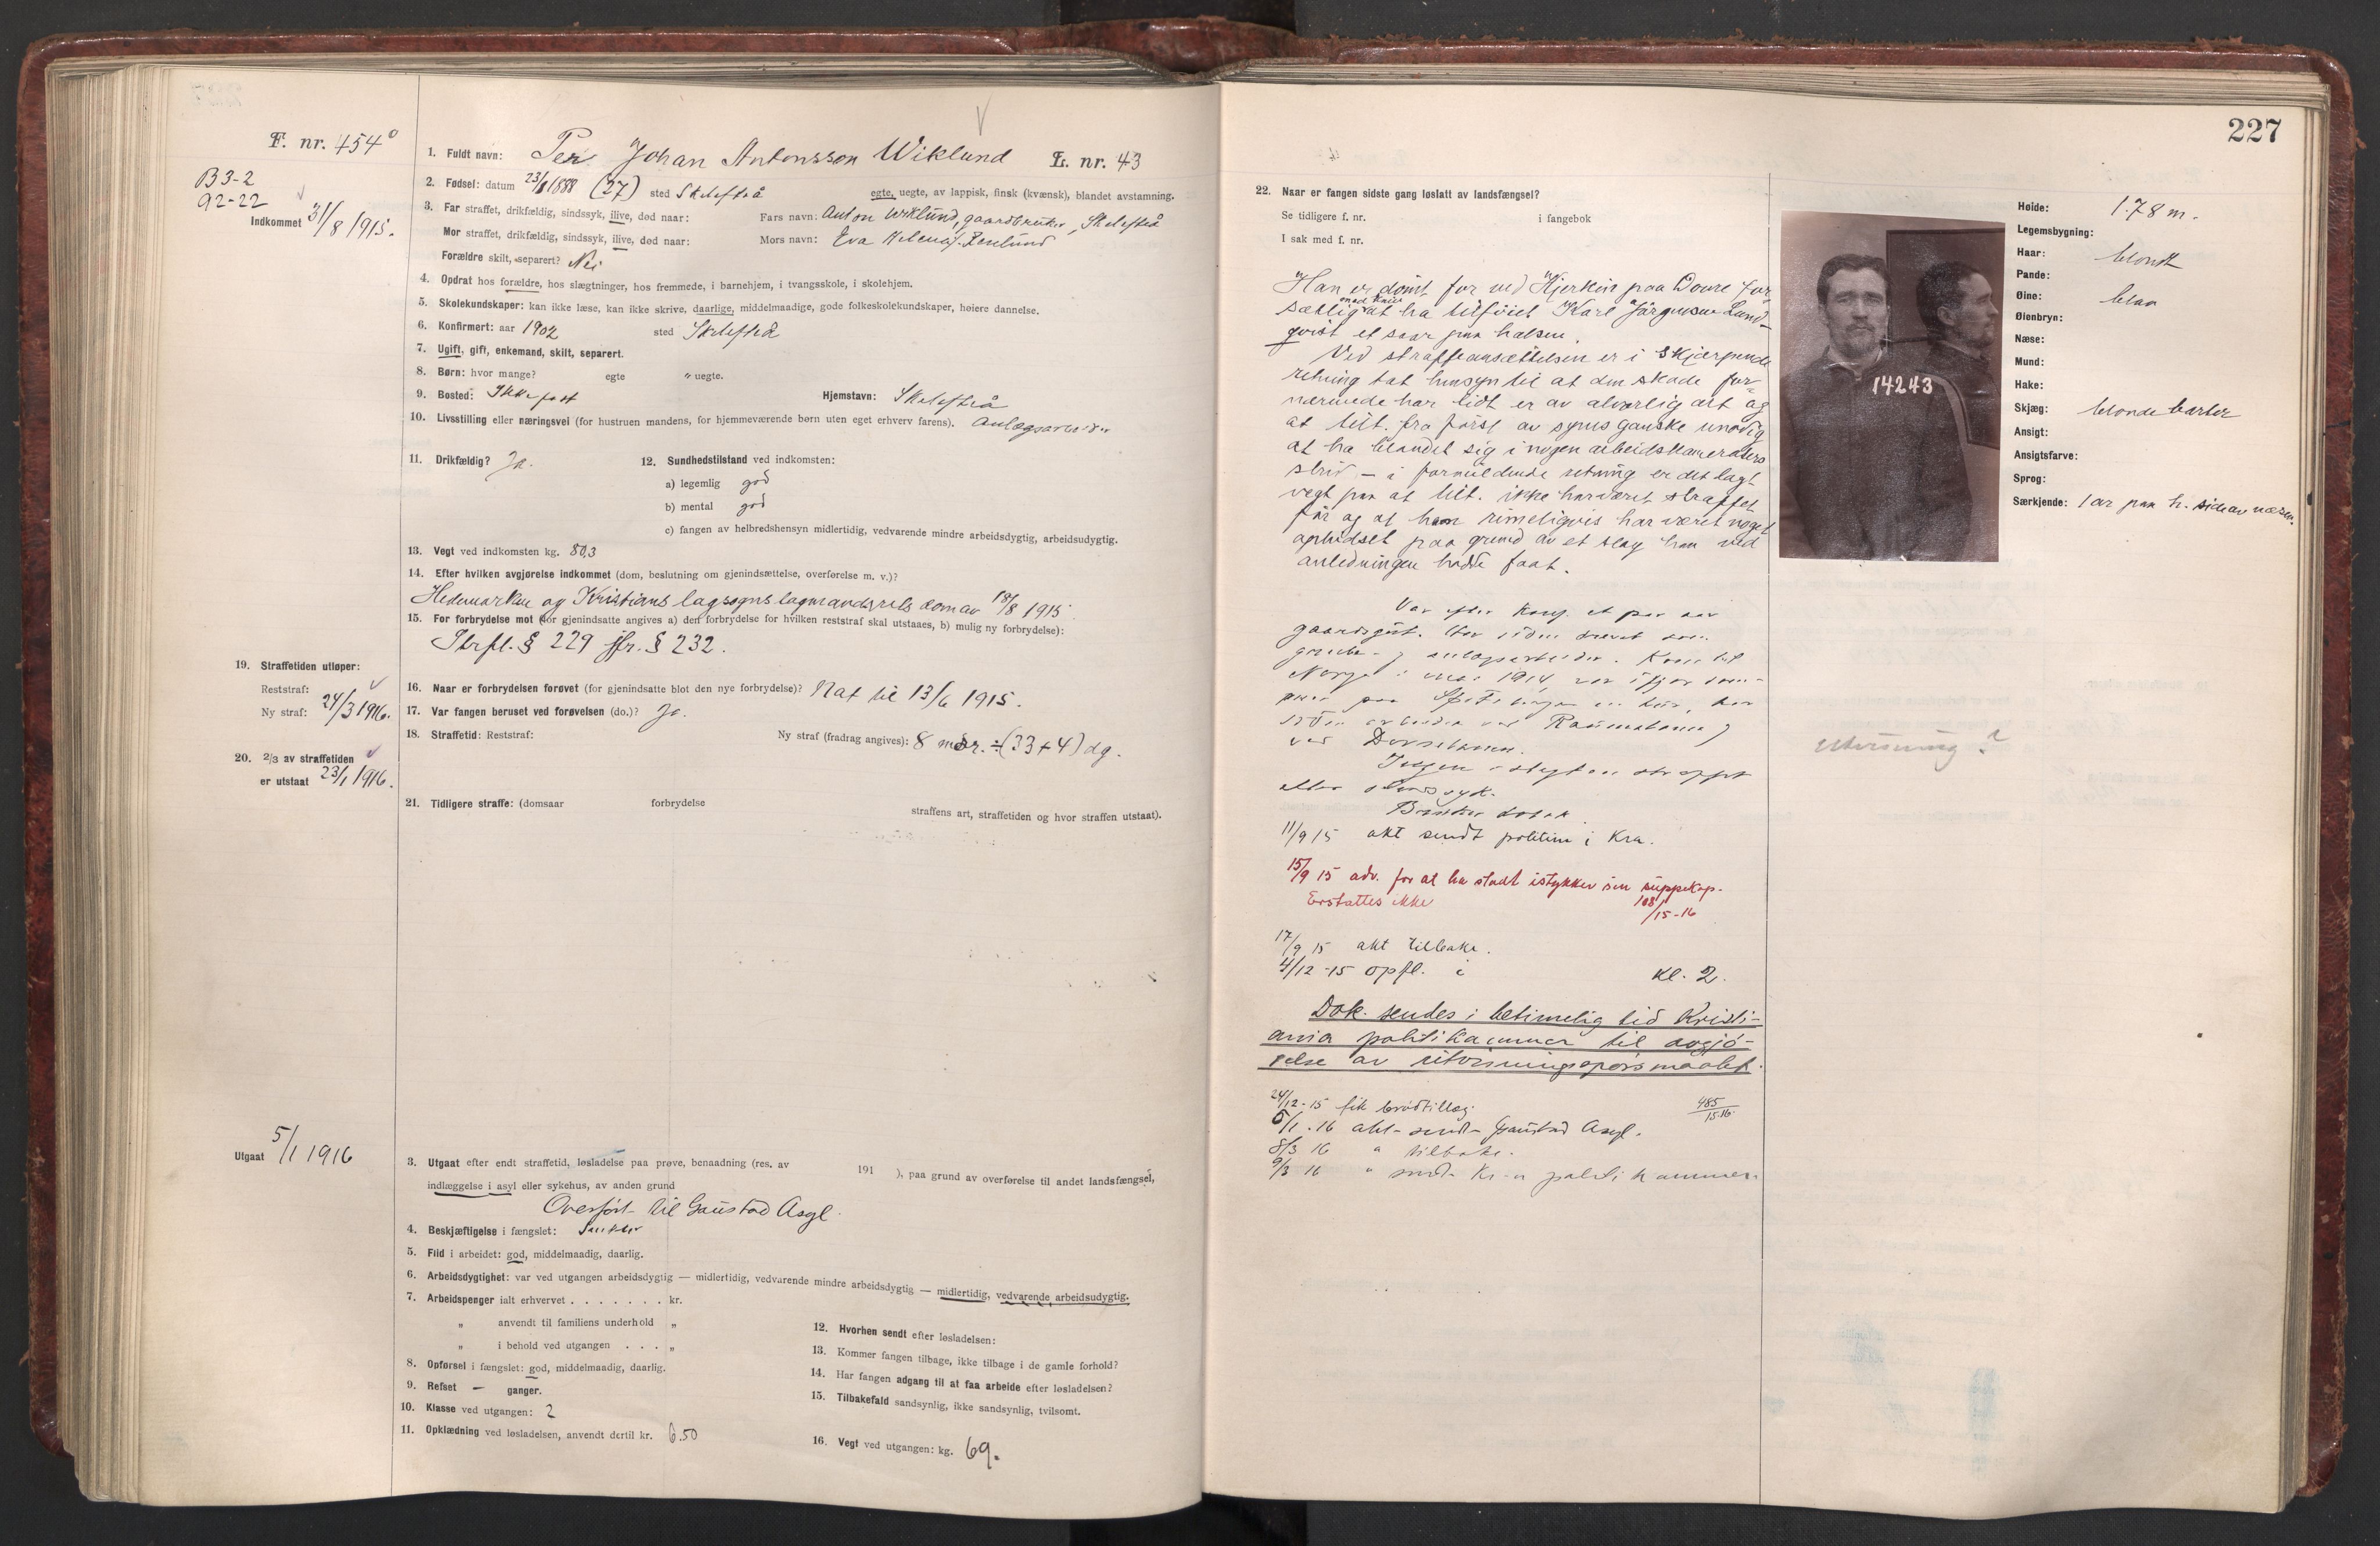 F. nr. 454°
B3-2
92-22
Indkommet 31/8 1915.
1. Fuldt navn: Per Johan Antonsson Wiklund L. nr. 43
2. Fødsel: datum 23/8 1888 (27) sted Skelefteå egte, uegte, av lappisk, finsk (kvænsk), blandet avstamning.
3. Far straffet, drikfældig, sindssyk, ilive, død naar: Fars navn: Anton Wiklund, gaardbruker, Skelefteå
Mor straffet, drikfældig, sindssyk, ilive, død naar: Mors navn: Eva Helena
Forældre skilt, separert? Nei
4. Opdrat hos forældre, hos slægtninger, hos fremmede, i barnehjem, i tvangsskole, i skolehjem.
5. Skolekundskaper: kan ikke læse, kan ikke skrive, daarlige, middelmaadige, gode folkeskolekundskaper, høiere dannelse.
6. Konfirmert: aar 1902 sted Skelefteå
7. Ugift, gift, enkemand, skilt, separert.
8. Børn: hvor mange? egte " uegte.
9. Bosted: Ikke fast Hjemstavn: Skelefteå
10. Livsstilling eller næringsvei (for hustruen mandens, for hjemmeværende børn uten eget erhverv farens). Anlægsarbeider
11. Drikfældig? Ja. 12. Sundhedstilstand ved indkomsten:
a) legemlig god
b) mental god
c) fangen av helbredshensyn midlertidig, vedvarende mindre arbeidsdygtig, arbeidsudygtig.
13. Vegt ved indkomsten kg. 80,3
14. Efter hvilken avgjørelse indkommet (dom, beslutning om gjenindsættelse, overførelse m. v.)?
Hedemarken og Kristians lagsogns lagmandsrets dom av 18/8 1915.
15. For forbrydelse mot (for gjenindsatte angives a) den forbrydelse for hvilken reststraf skal utstaaes, b) mulig ny forbrydelse):
Strfl. § 229 jfr. § 232.
19. Straffetiden utløper:
Reststraf:
Ny straf: 24/3 1916.
16. Naar er forbrydelsen forøvet (for gjenindsatte blot den nye forbrydelse)? Nat til 13/6 1915.
17. Var fangen beruset ved forøvelsen (do.)? Ja.
18. Straffetid: Reststraf: Ny straf (fradrag angives): 8 mdr. ÷ (33 + 4) dg.
20. 2/3 av straffetiden
er utstaat 23/1 1916.
21. Tidligere straffe: (domsaar forbrydelse straffens art, straffetiden og hvor straffen utstaat).
Utgaat 5/1 1916
3. Utgaat efter endt straffetid, løsladelse paa prøve, benaadning (res. av 191 ), paa grund av overførelse til andet landsfængsel,
indlæggelse i asyl eller sykehus, av anden grund
Overført til Gaustad Asyl.
4. Beskjæftigelse i fængslet: Snekker
5. Flid i arbeidet: god, middelmaadig, daarlig.
6. Arbeidsdygtighet: var ved utgangen arbeidsdygtig — midlertidig, vedvarende mindre arbeidsdygtig — midlertidig, vedvarende arbeidsudygtig.
7. Arbeidspenger ialt erhvervet . . . . . . . kr.
" anvendt til familiens underhold "
" i behold ved utgangen . . . "
8. Opførsel i fængslet: god, middelmaadig, daarlig.
9. Refset — ganger.
10. Klasse ved utgangen: 2
11. Opklædning ved løsladelsen, anvendt dertil kr. 6.50
12. Hvorhen sendt efter løsladelsen:
13. Kommer fangen tilbage, ikke tilbage i de gamle forhold?
14. Har fangen adgang til at faa arbeide efter løsladelsen?
15. Tilbakefald sandsynlig, ikke sandsynlig, tvilsomt.
16. Vegt ved utgangen: kg. 69.
227
22. Naar er fangen sidste gang løslatt av landsfængsel?
Se tidligere f. nr. i fangebok
I sak med f. nr.
Han er dømt for ved Hjerkin paa Dovre for-
sætlig med kniv at ha tilføiet Karl Jørgensen Lund-
qvist et saar paa halsen.
Ved straffeansættelsen er i skjærpende
retning tat hensyn til at den skade for-
nærmede har lidt er av alvorlig art og
at tilt. fra først av synes ganske unødig
at ha blandet sig i nogen arbeidskameraters
strid – i formildende retning er det lagt
vegt paa at tilt. ikke har været straffet
før og at han rimeligvis har været noget
ophidset paa grund av et slag han ved
anledningen hadde faat.
Var efter konf. et par aar
gaardsgut. Har siden drevet som
grube- og anlægsarbeider. Kom til
Norge i mai 1914, var ifjor som-
mer paa Spitsbergen en tur, har
siden arbeidet ved Raumabanen og
ved Dovrebanen.
Ingen i slegten straffet
eller sindssyk.
11/9 15 akt sendt politiet i Kra.
15/9 15 adv. for at ha slaat istykker sin suppekop.
Erstattes ikke 168/15-16
17/9 15 akt tilbake.
4/12-15 opfl. i kl. 2.
Dok. sendes i betimelig tid Kristi-
ania politikammer til avgjø-
relse av utvisningsspørsmaalet.
24/12-15 fik brødtillæg. 485/15-16
5/1.16 akt sendt Gaustad Asyl.
8/3 16 " tilbake.
9/3 16 " sendt Kr-a politikammer
14243
Høide: 1.78 m.
Legemsbygning:
Haar: blondt
Pande:
Øine: blaa
Øienbryn:
Næse:
Mund:
Hake:
Skjæg: blonde barter
Ansigt:
Ansigtsfarve:
Sprog:
Særkjende: 1 ar paa h. side av næsen.
utvisning?